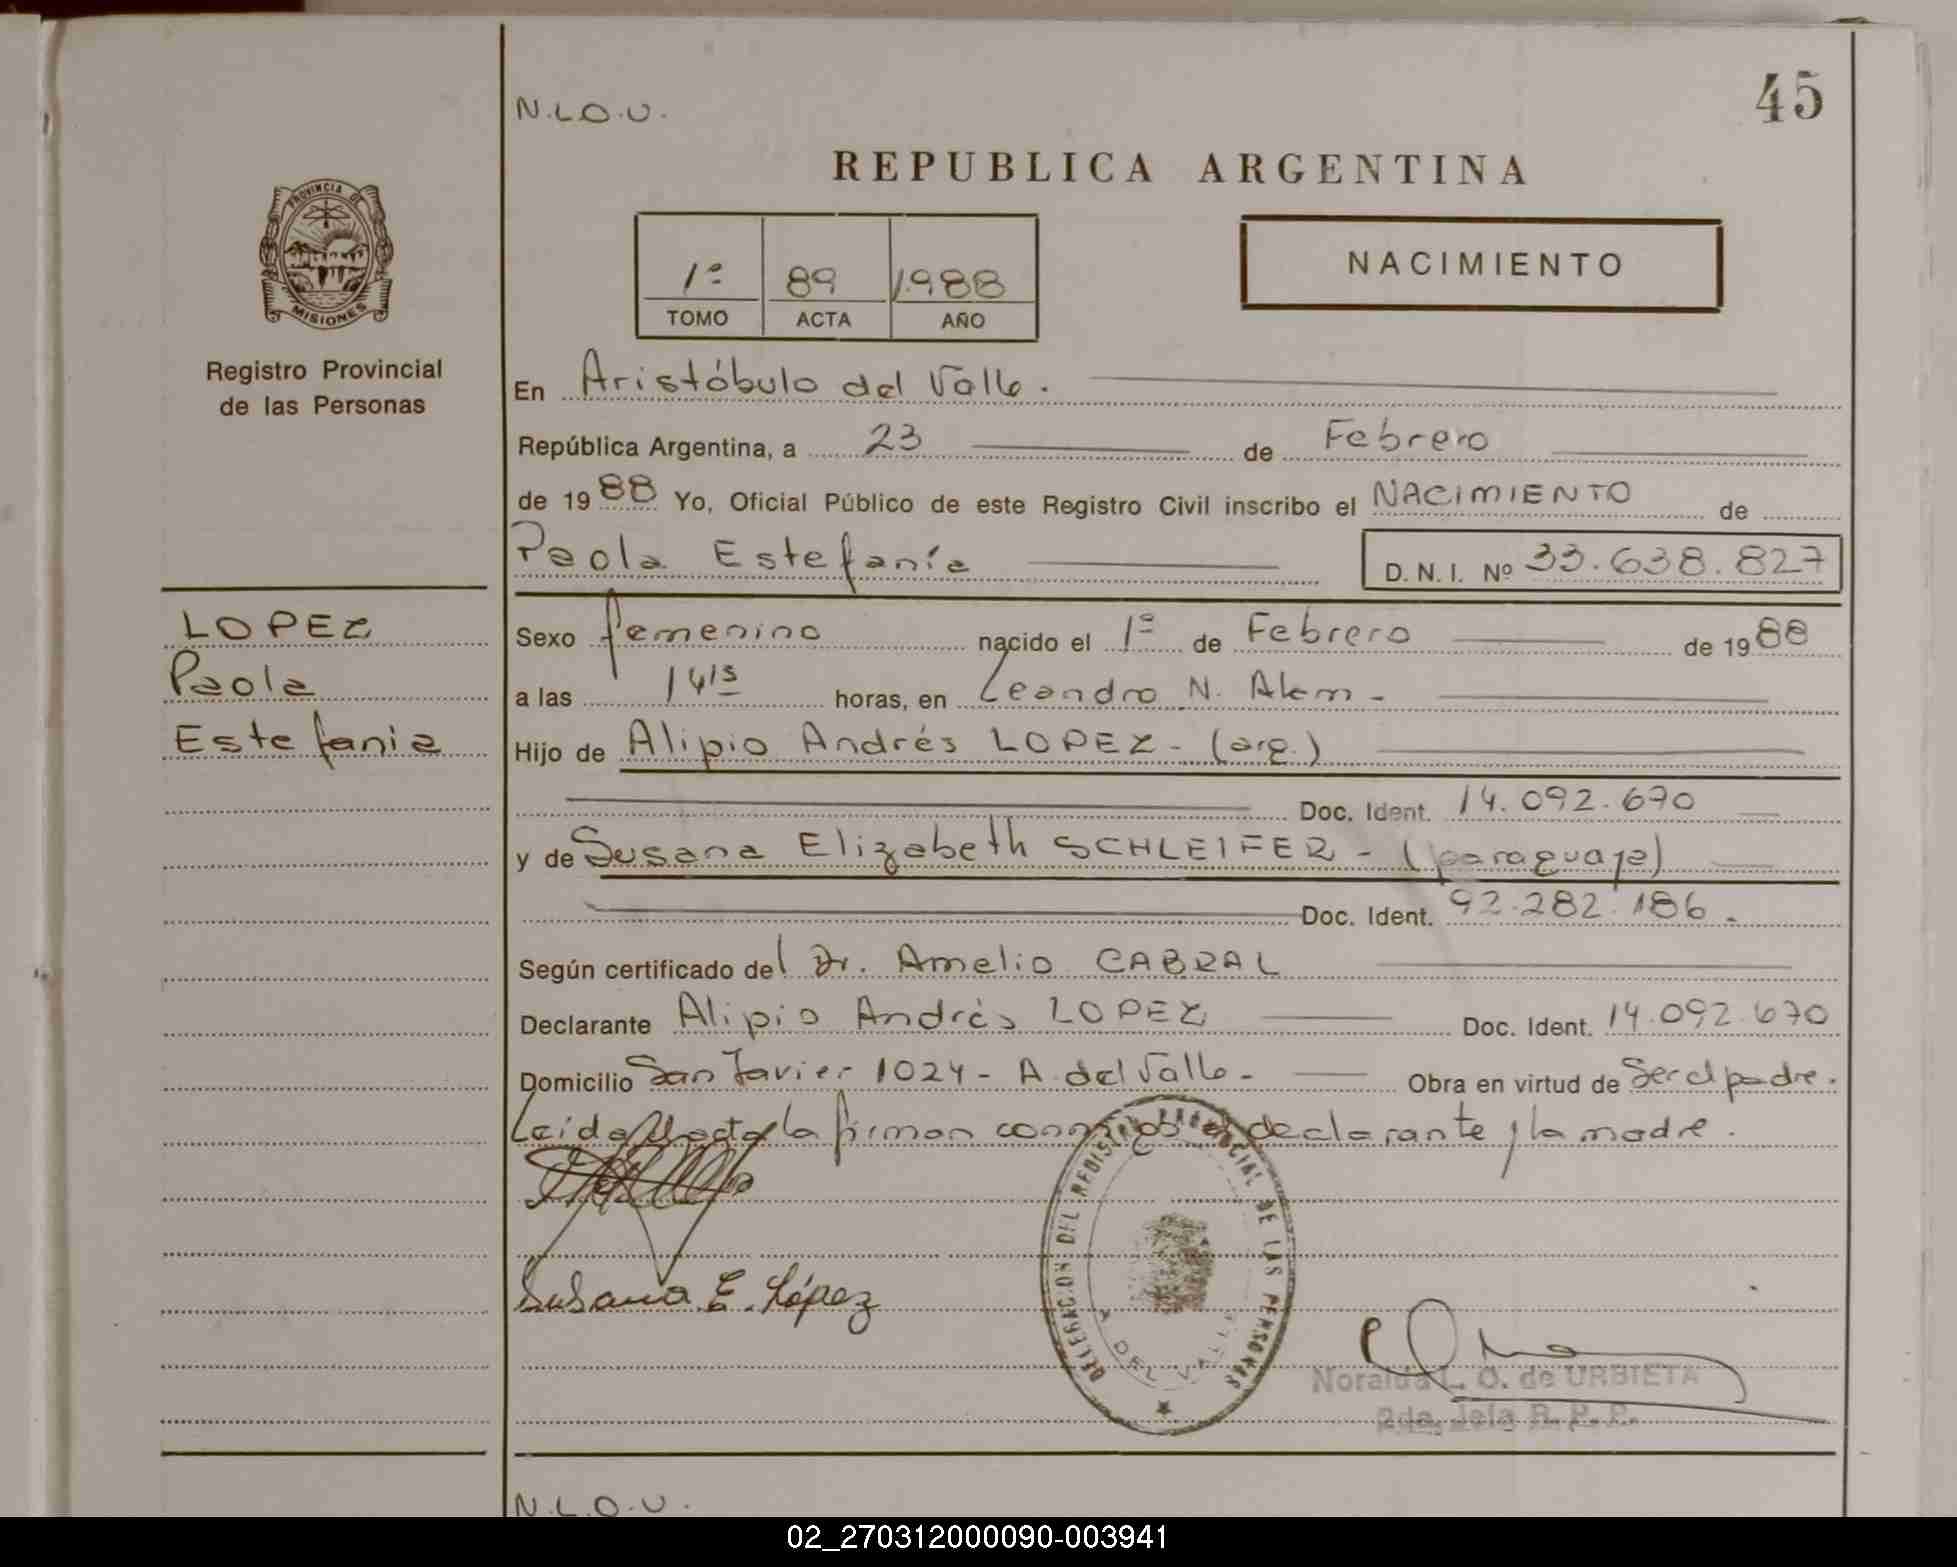 N.L.O.U.
45
REPUBLICA ARGENTINA
PROVINCIA DE
MISIONES
Registro Provincial
de las Personas
1º 89 1988
TOMO ACTA AÑO
NACIMIENTO
En Aristóbulo del Valle.
República Argentina, a 23 de Febrero
de 1988 Yo, Oficial Público de este Registro Civil inscribo el NACIMIENTO de
Paola Estefanía D.N.I. Nº 33.638.827
LOPEZ
Paola
Estefania
Sexo femenino nacido el 1º de Febrero de 1988
a las 14 15 horas, en Leandro N. Alem -
Hijo de Alipio Andrés LOPEZ - (arg.)
Doc. Ident. 14.092.670
y de Susana Elizabeth SCHLEIFER - (paraguaya)
Doc. Ident. 92.282.186.
Según certificado del Dr. Amelio CABRAL
Declarante Alipio Andrés LOPEZ Doc. Ident. 14.092.670
Domicilio San Javier 1024 - A. del Valle - Obra en virtud de Ser el padre.
Leida el acta la firman conmigo el declarante y la madre.
DELEGACION DEL REGISTRO PROVINCIAL DE LAS PERSONAS
A DEL VALLE
Susana E. López
L. O. de URBIETA
2da. Jefa R. P. P.
N.L.O.U.
02_270312000090-003941